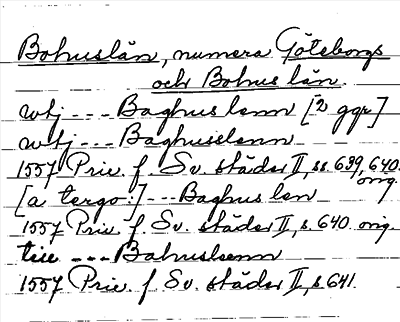 Bohuslän, numera Göteborgs
och Bohus län.
utj --- Baghus lenn [2 ggr]
utj --- Baghusslenn
1557 Priv. f. Sv. städer II, ss 639, 640.
orig.
[a tergo:] --- Baghus len
1557 Priv. f. Sv. städer II, s. 640. orig.
till --- Bahuslenn
1557 Priv. f. Sv. städer II, s. 641.